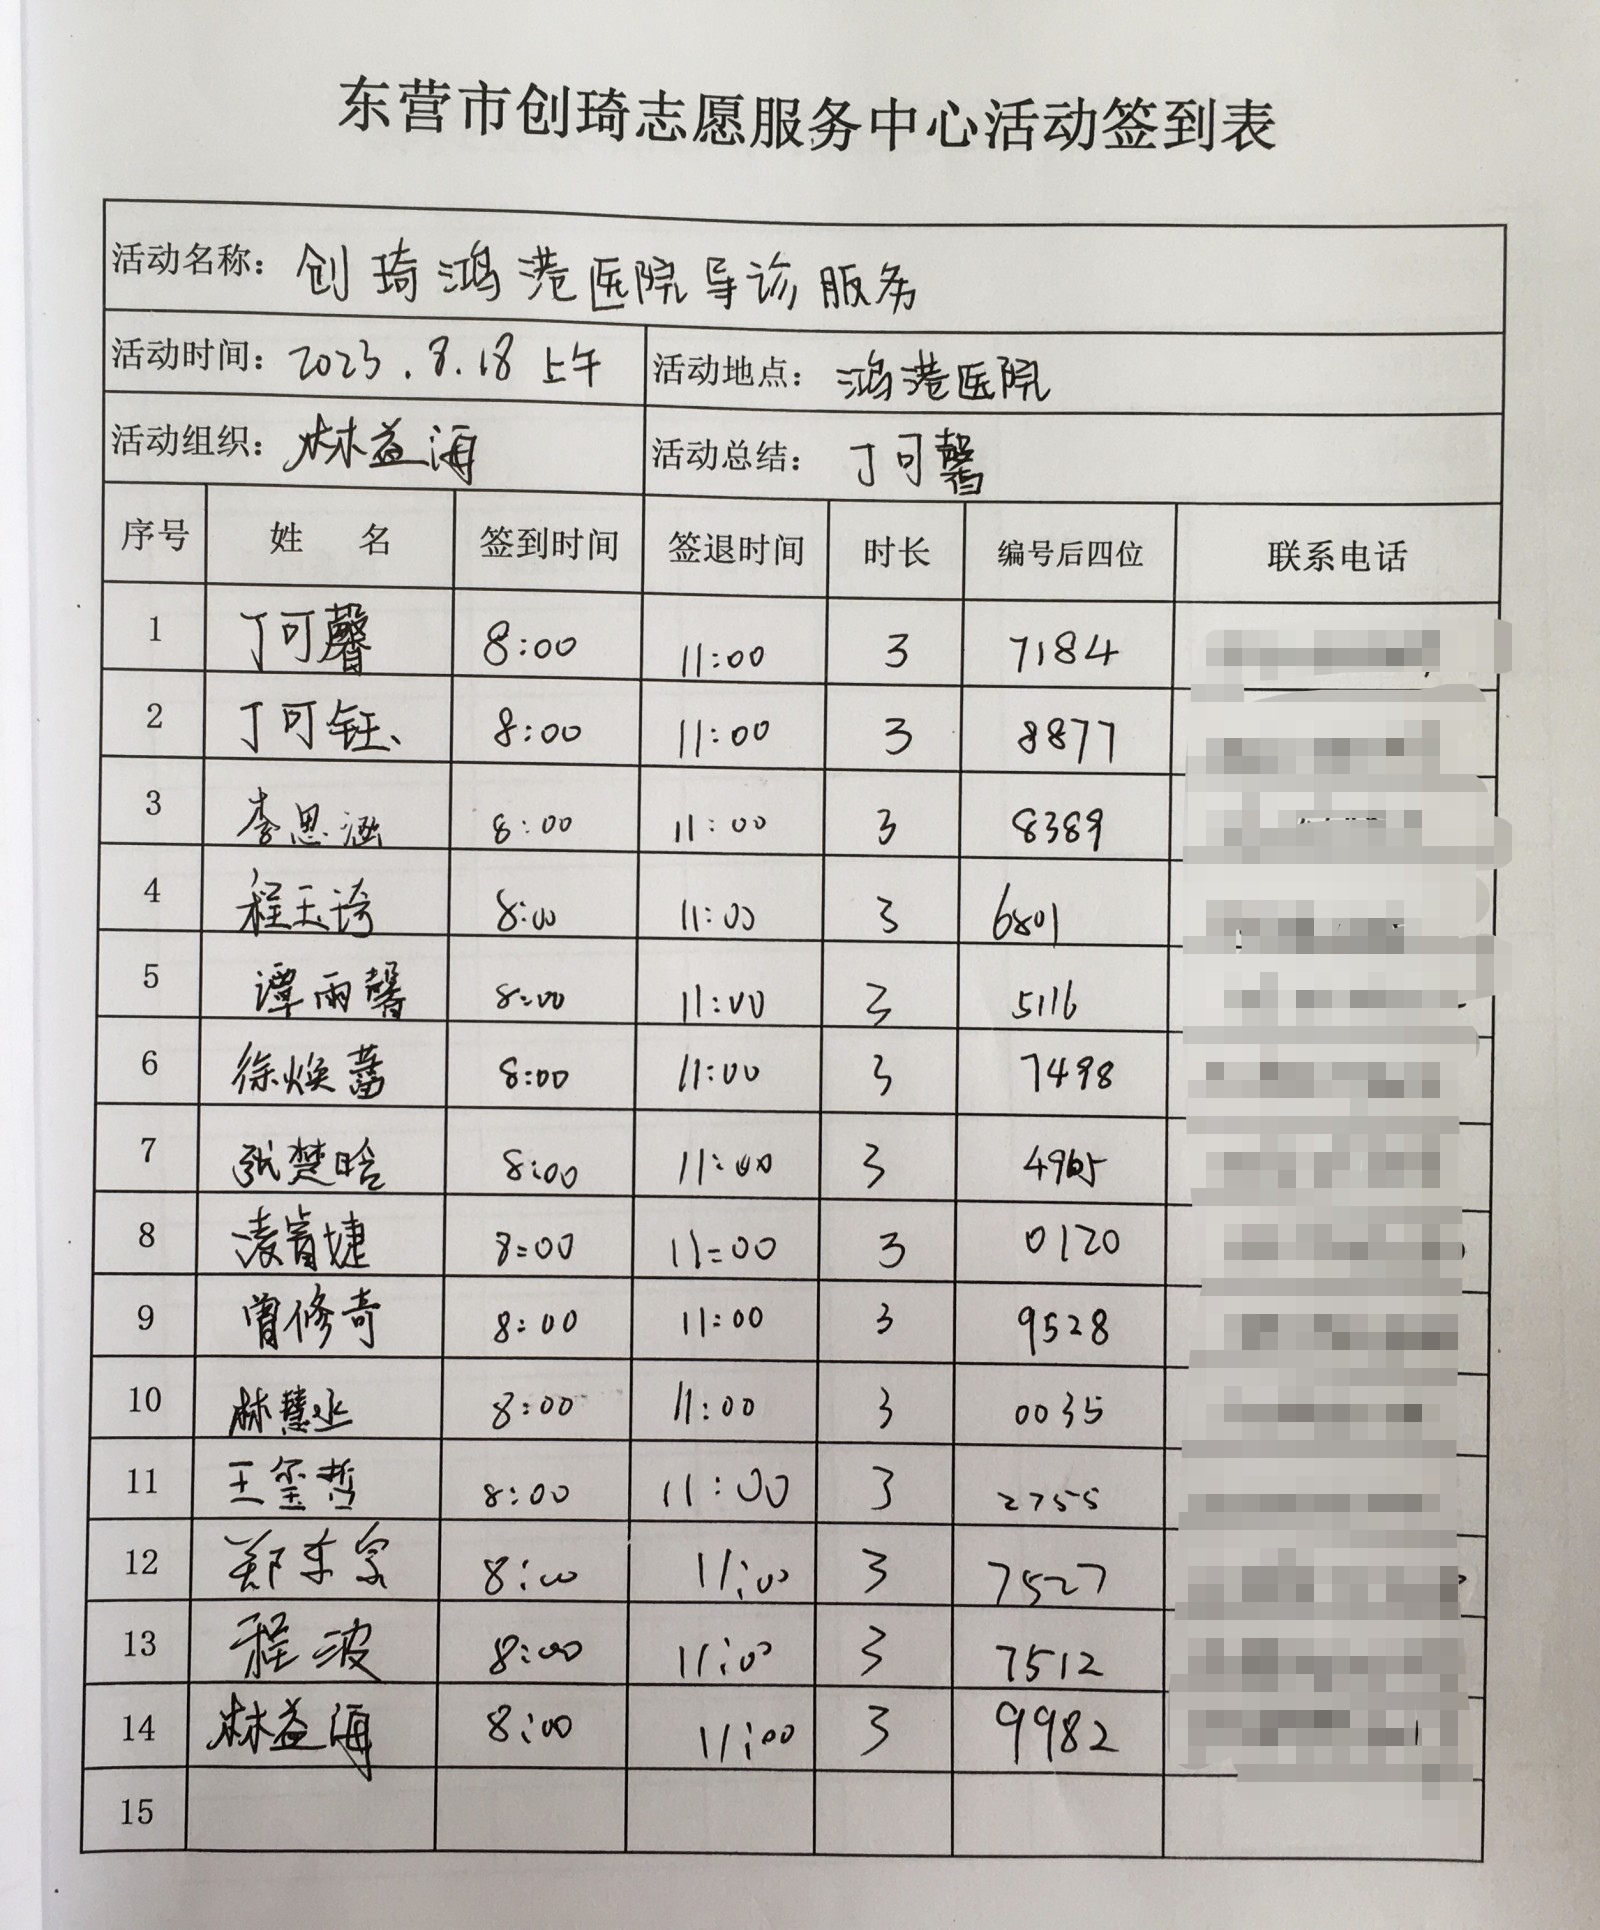 东营市创琦志愿服务中心活动签到表
活动名称：创琦鸿港医院导诊服务
活动时间：2023.8.18上午 活动地点：鸿港医院
活动组织：林益海 活动总结：丁可馨
序号 姓名 签到时间 签退时间 时长 编号后四位 联系电话
1 丁可馨 8:00 11:00 3 7184
2 丁可钰 8:00 11:00 3 8877
3 李思涵 8:00 11:00 3 8389
4 程玉琦 8:00 11:00 3 6801
5 谭雨馨 8:00 11:00 3 5116
6 徐焕蕾 8:00 11:00 3 7498
7 张楚晗 8:00 11:00 3 4965
8 凌肯婕 8:00 11:00 3 0120
9 曾修奇 8:00 11:00 3 9528
10 林慧丞 8:00 11:00 3 0035
11 王玺哲 8:00 11:00 3 2755
12 郑东宗 8:00 11:00 3 7527
13 程波 8:00 11:00 3 7512
14 林益海 8:00 11:00 3 9982
15